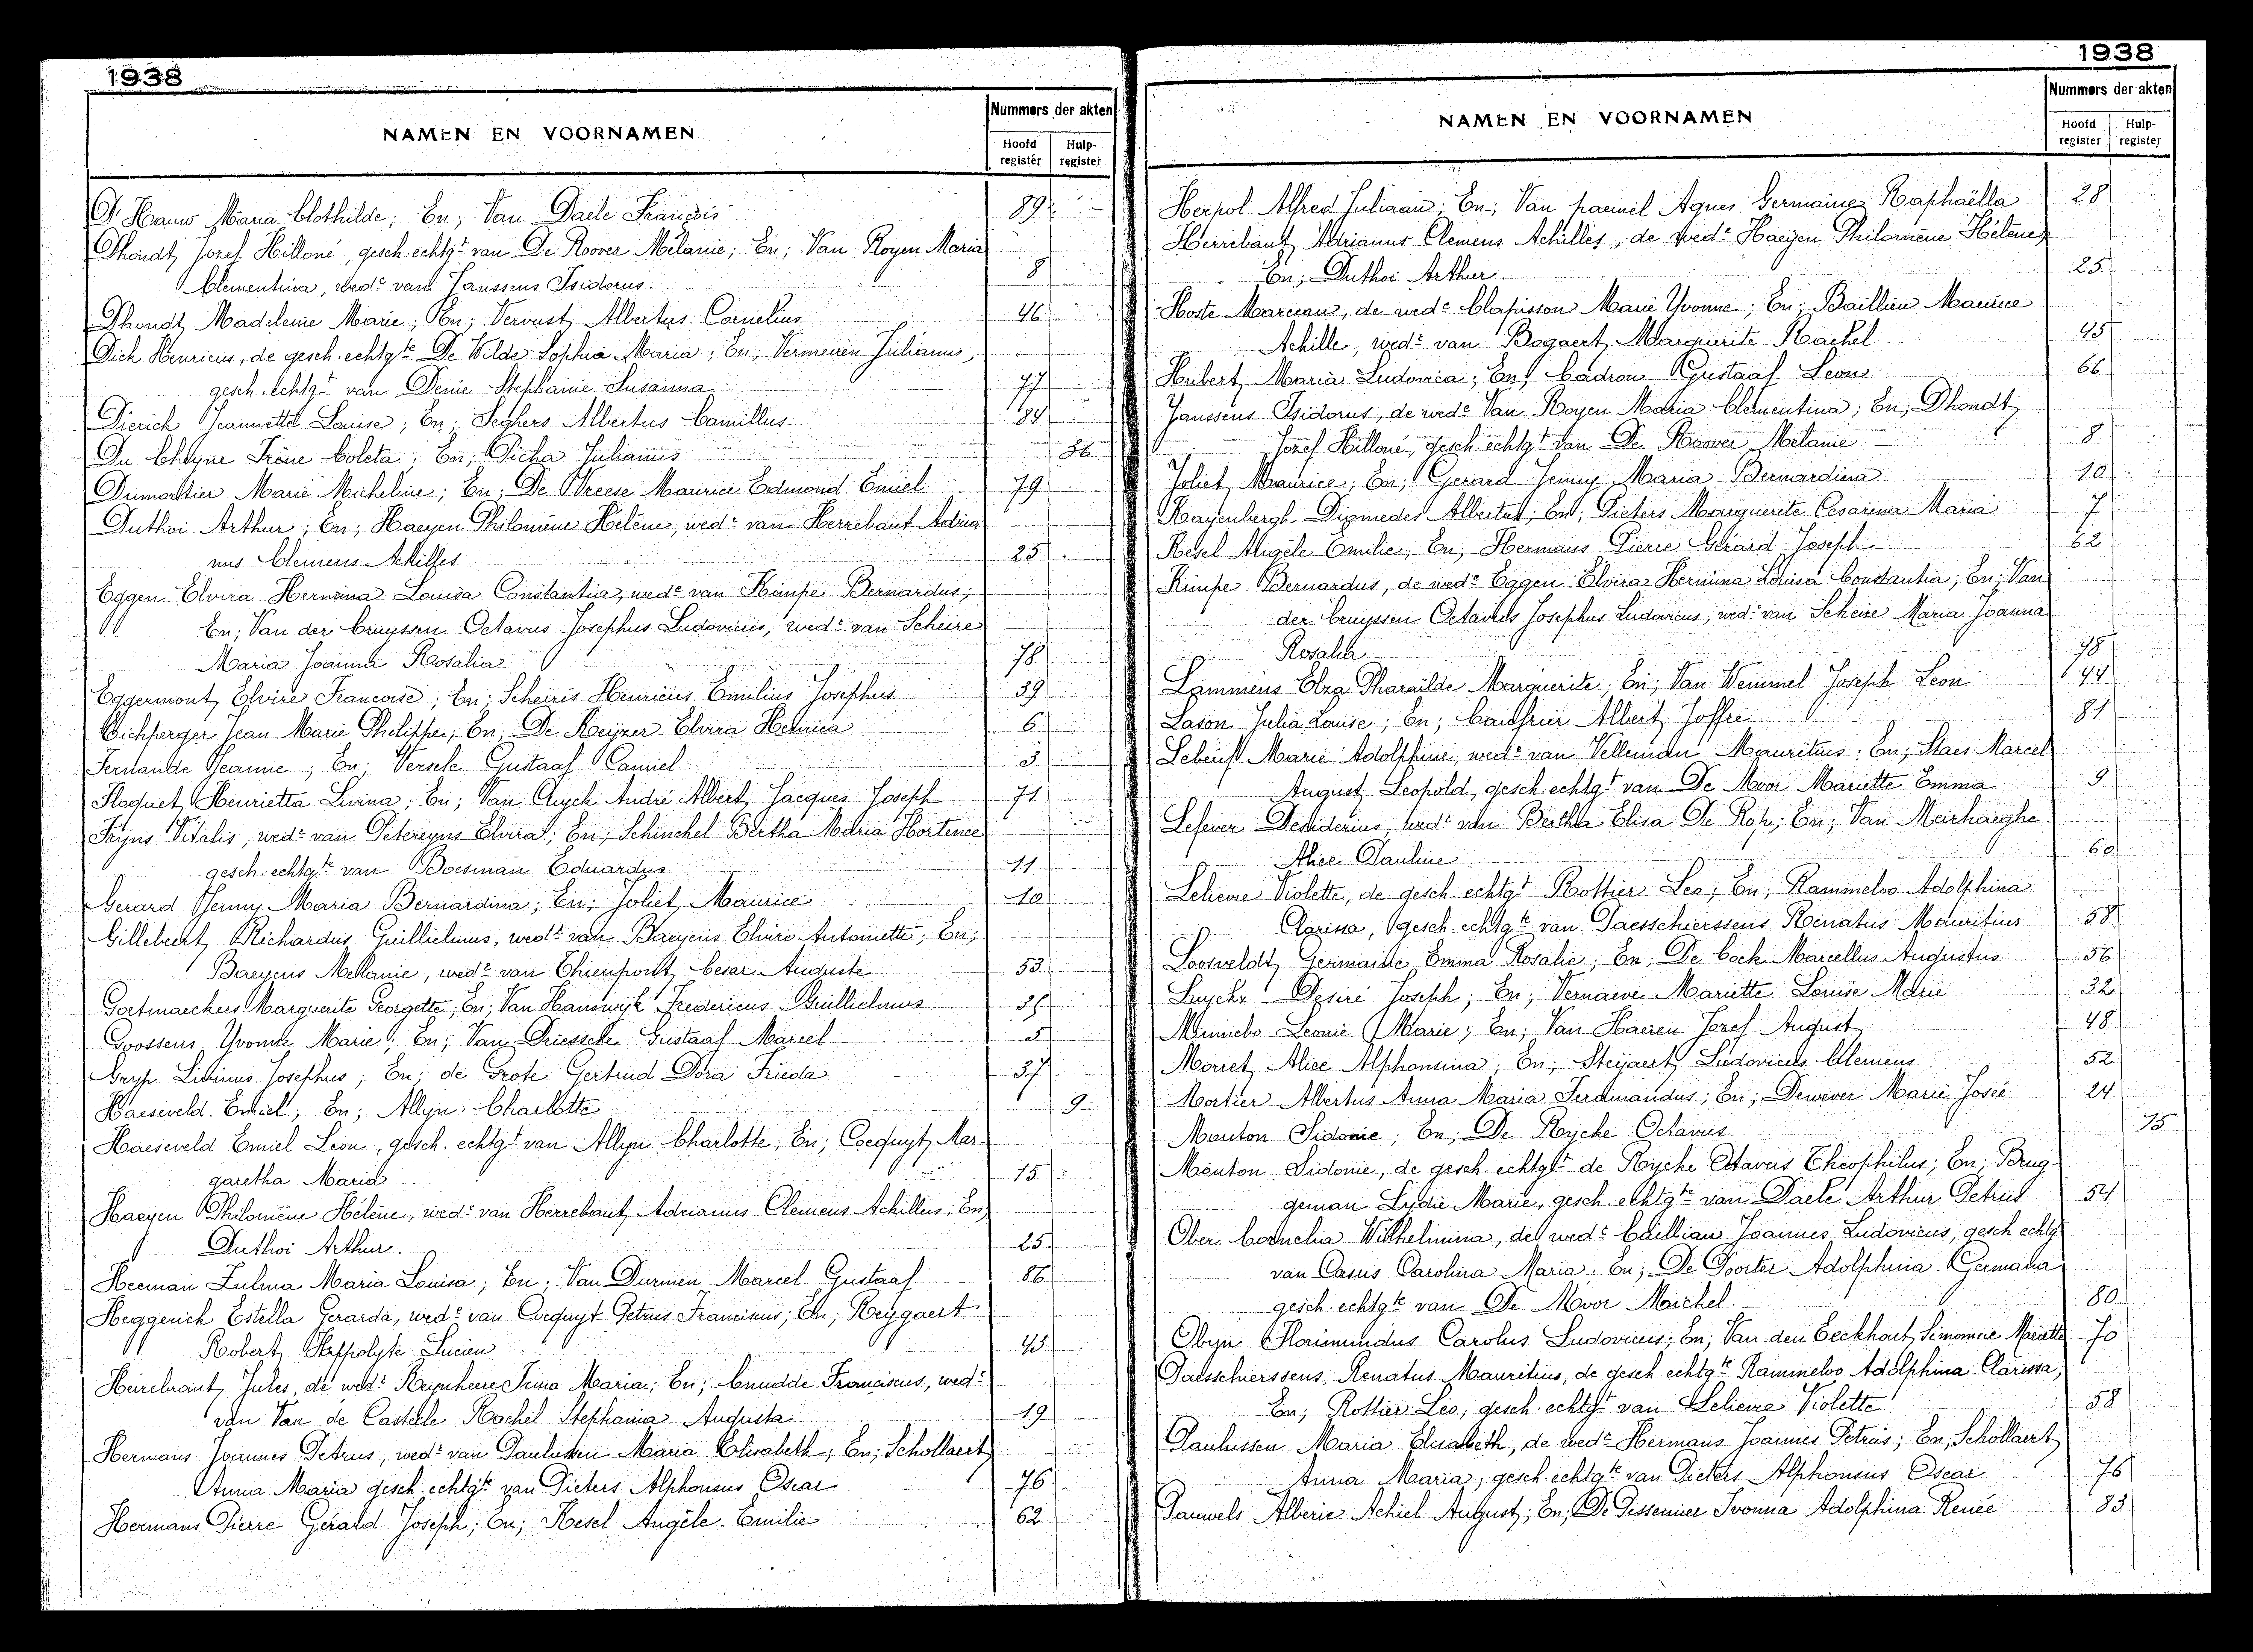 1938
NAMEN EN VOORNAMEN
Nummers der akten
Hoofd register
Hulp-register
D'Hauw Maria Clothilde; En; Van Daele François 89
Dhondt Jozef Hilloné, gesch. echtgt van De Roover Mélanie; En; Van Royen Maria
Clementina, wede van Janssens Isidorus. 8
Dhondt Madeleine Marie; En; Vervust Albertus Cornelius 46
Dick Henricus, de gesch. echtgte De Wilde Sophia Maria; En; Vermeiren Julianus,
gesch. echtgt van Denie Stephanie Susanna 77
Dierick Jeannette Louise; En; Seghers Albertus Camillus 84
Du Cheyne Irène Coleta; En; Picha Julianus 36
Dumortier Marie Micheline; En; De Vreese Maurice Edmond Emiel 79
Duthoi Arthur; En; Haeyen Philomène Hélène, wede van Herrebaut Adria
nus Clemens Achilles 25
Eggen Elvira Hermina Louisa Constantia, wede van Kimpe Bernardus;
En; Van der Cruyssen Octavus Josephus Ludovicus, wedr van Scheire
Maria Joanna Rosalia 78
Eggermont Elvire Francoise; En; Scheiris Henricus Emilius Josephus 39
Eichperger Jean Marie Philippe; En; De Keijzer Elvira Henrica 6
Fernande Jeanne; En; Versele Gustaaf Camiel 3
Floquet Henrietta Livina; En; Van Cuyck André Albert Jacques Joseph 71
Fryns Vitalis, wedr van Petereyns Elvira; En; Schinckel Bertha Maria Hortence
gesch. echtgte van Boesman Eduardus 11
Gerard Jenny Maria Bernardina; En; Joliet Maurice 10
Gillebeert Richardus Guillielmus, wedr van Baeyens Elvire Antoinette; En;
Baeyens Mélanie, wede van Thienpont Cesar Auguste 53
Goetmaeckers Marguerite Georgette; En; Van Hanswijk Fredericus Guillielmus 35
Goossens Yvonne Marie; En; Van Driessche Gustaaf Marcel 5
Gryp Livinus Josephus; En; de Grote Gertrud Dora Frieda 37
Haeseveld Emiel; En; Allyn Charlotte 9
Haeseveld Emiel Leon, gesch. echtgt van Allyn Charlotte; En; Coequyt Mar-
garetha Maria 15
Haeyen Philomène Hélène, wede van Herrebaut Adrianus Clemens Achilles; En;
Duthoi Arthur. 25
Heeman Zulma Maria Louisa; En; Van Durmen Marcel Gustaaf 86
Heggerick Estella Gerarda, wede van Coequyt Petrus Franciscus; En; Reygaert
Robert Hyppolyte Lucien 43
Heirebraut Jules, de wede Reynheere Irma Maria; En; Cnudde Franciscus, wedr
van Van de Casteele Rachel Stephania Augusta 19
Hermans Joannes Petrus, wedr van Paulussen Maria Elisabeth; En; Schollaert
Anna Maria gesch. echtgte van Pieters Alphonsus Oscar 76
Hermans Pierre Gérard Joseph; En; Kesel Angèle Emilie 62
1938
NAMEN EN VOORNAMEN
Nummers der akten
Hoofd register
Hulp-register
Herpol Alfred Juliaan; En; Van paemel Agnes Germaine Raphaëlla 28
Herrebaut Adrianus Clemens Achilles, de wede Haeyen Philomène Hélène;
En; Duthoi Arthur 25
Hoste Marceau, de wede Clapisson Marie Yvonne; En; Baillieu Maurice
Achille, wedr van Bogaert Marguerite Rachel 45
Hubert Maria Ludovica; En; Cadron Gustaaf Leon 66
Janssens Isidorus, de wede Van Royen Maria Clementina; En; Dhondt
Jozef Hilloné, gesch. echtgt van De Roover Melanie 8
Joliet Maurice; En; Gerard Jenny Maria Bernardina 10
Kayenbergh Diomedes Albertus; En; Pieters Marguerite Cesarina Maria 7
Kesel Angèle Emilie; En; Hermans Pierre Gérard Joseph 62
Kimpe Bernardus, de wede Eggen Elvira Hermina Louisa Constantia; En; Van
der Cruyssen Octavus Josephus Ludovicus, wedr van Scheire Maria Joanna
Rosalia 78
Lammens Elza Pharaïlde Marguerite; En; Van Wemmel Joseph Leon 44
Lason Julia Louise; En; Albert Joffre 81
Marie Adolphine, wede van Velleman Mauritius; En; Staes Marcel
August Leopold, gesch. echtgt van De Moor Mariette Emma 9
Lefever Desiderius wedr van Bertha Elisa De Rop; En; Van Meirhaeghe
Alice Pauline 60
Lelieue Violette, de gesch. echtgt Rottier Leo; En; Rammeloo Adolphina
Clarissa, gesch. echtgte van Paesschierssens Renatus Mauritius 58
Loosveldt Germaine Emma Rosalie; En; De Cock Marcellus Augustus 56
Luyckx Désiré Joseph; En; Vernaeve Mariette Louise Marie 32
Minnebo Leonie Marie; En; Van Haeren Jozef August 48
Morret Alice Alphonsina; En; Steijaert Ludovicus Clemens 52
Mortier Albertus Anna Maria Ferdinandus; En; Dewever Marie Josée 24
Mouton Sidonie; En; De Rycke Octavus 15
Mouton Sidonie, de gesch. echtgt de Rycke Octavus Theophilus; En; Brug-
geman Lydie Marie, gesch. echtgte van Daele Arthur Petrus 54
Ober Cornelia Wilhelmina, de wede Cuillian Joannes Ludovicus, gesch echtg
van Casus Carolina Maria; En; De Poorter Adolphina Germana
gesch. echtgte van De Moor Michel. 80
Obyn Florimundus Carolus Ludovicus; En; Van den Eeckhout Simonne Mariette 70
Paesschierssens Renatus Mauritius, de gesch. echtgte Rammeloo Adolphina Clarissa;
En; Rottier Léo, gesch. echtgt van Lelieue Violette 58
Paulussen Maria Elisabeth, de wedr Hermans Joannes Petrus; En; Schollaert
Anna Maria, gesch. echtgte van Pieters Alphonsus Oscar 76
Pauwels Alberic Achiel August; En; De Pessemier Ivonna Adolphina Renée 83